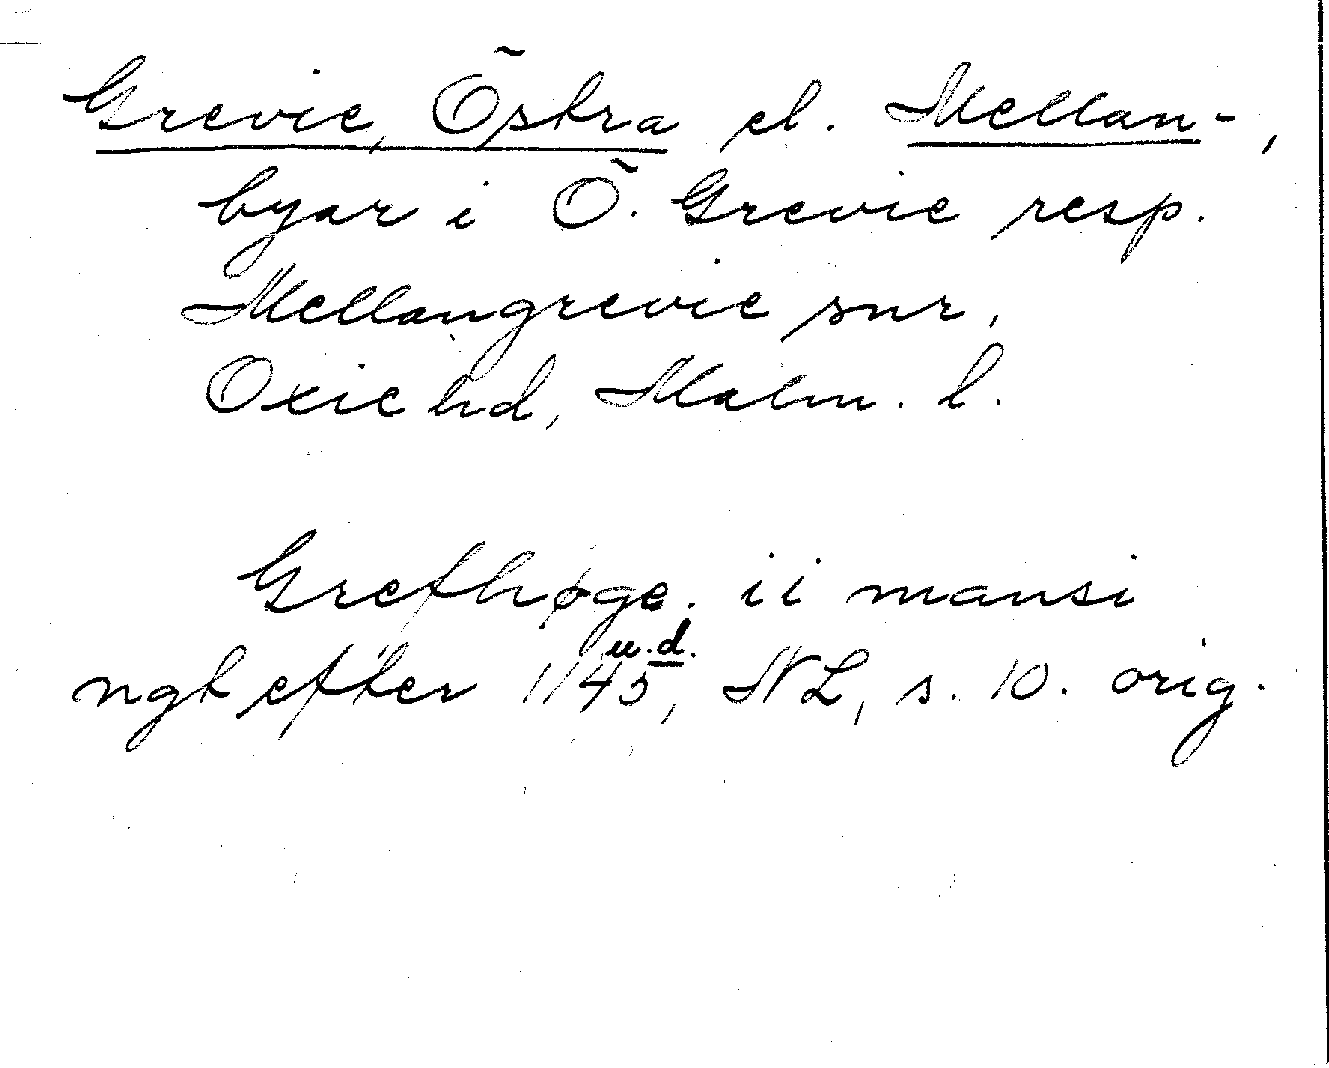 Grevie, Östra el. Mellan-,
byar i Ö. Grevie resp.
Mellangrevie snr,
Oxie hd, Malm. l.
Grefhøge. ii mansi
u.d.
ngt efter 1145, NL, s. 10. orig.